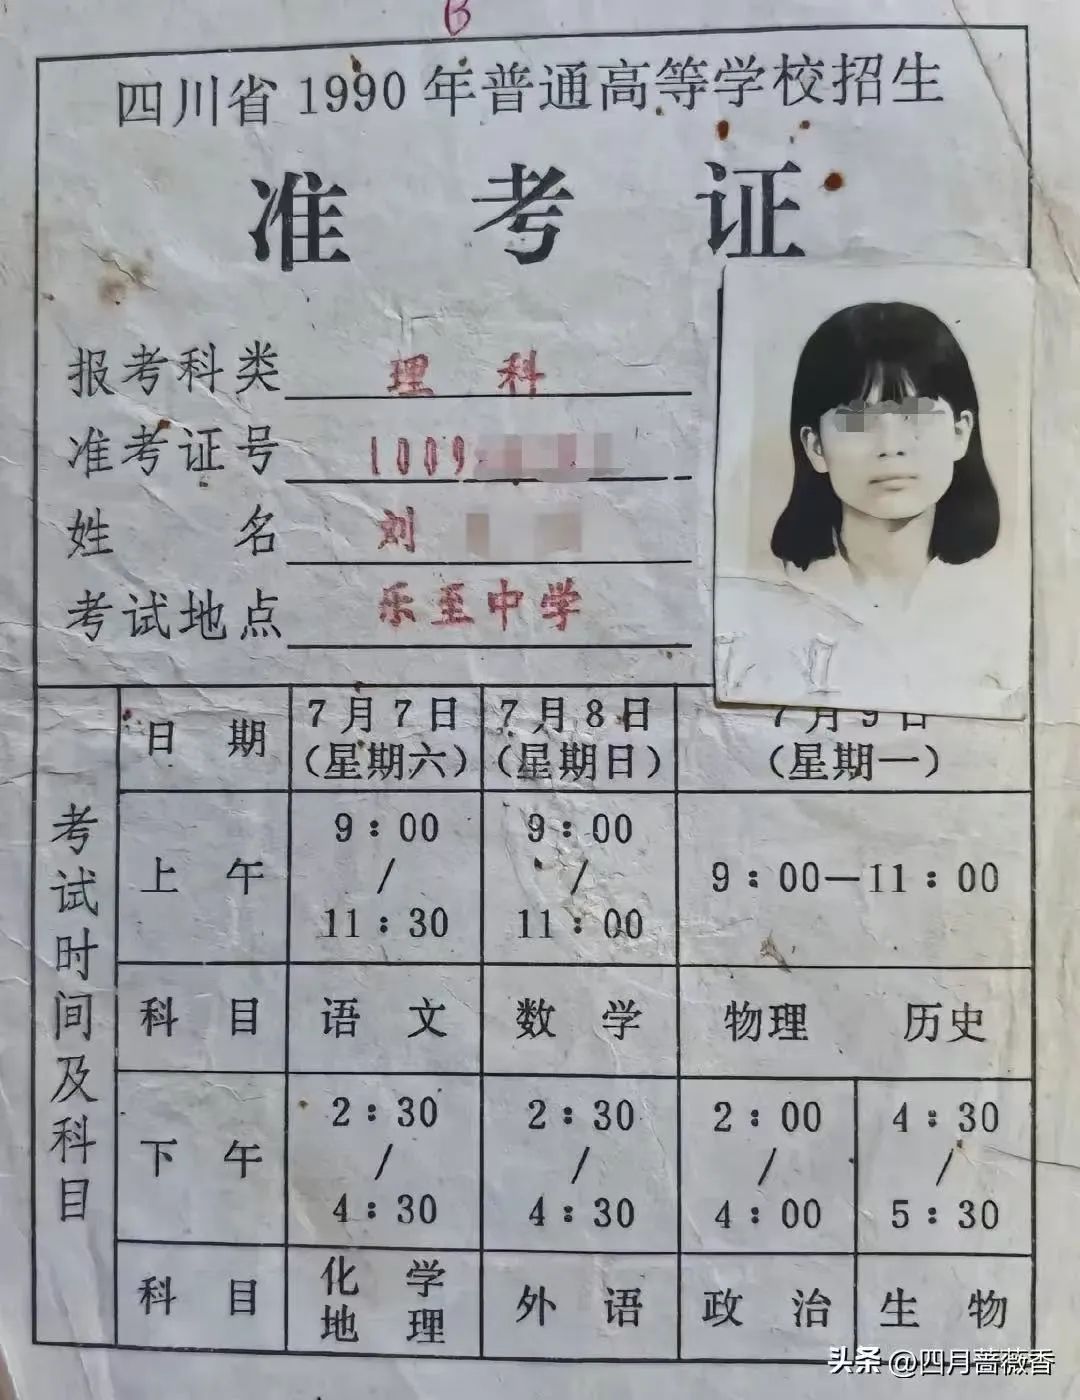 B
四川省1990年普通高等学校招生
准考证
报考科类 理科
准考证号 1009
姓名 刘
考试地点 乐至中学
考试时间及科目
日期 7月7日（星期六） 7月8日（星期日） 7月9日（星期一）
上午 9：00/11：30 9：00/11：00 9：00—11：00
科目 语文 数学 物理 历史
下午 2：30/4：30 2：30/4：30 2：00/4：00 4：30/5：30
科目 化学地理 外语 政治 生物
头条 @四月蔷薇香